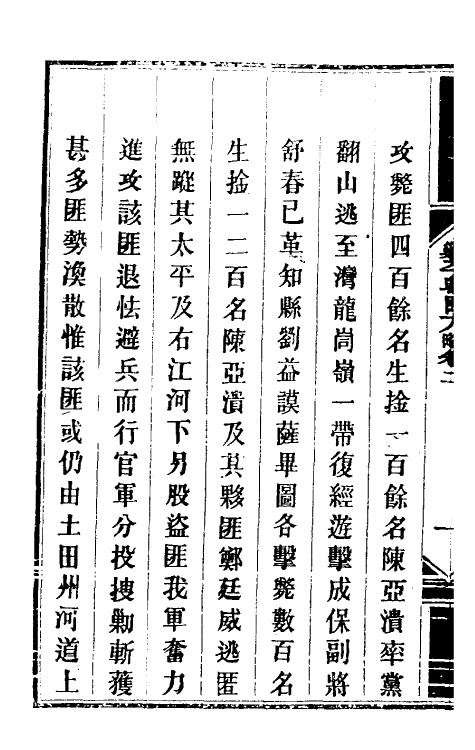 攻斃匪四百餘名生捦一百餘名陳亞潰率黨
翻山逃至灣龍崗嶺一帶復經遊擊成保副將
舒春已革知縣劉益謨薩畢圖各擊斃數百名
生捦一二百名陳亞潰及其夥匪鄭廷威逃匿
無蹤其太平及右江河下另股盜匪我軍奮力
進攻該匪退怯避兵而行官軍分投搜勦斬獲
甚多匪勢渙散惟該匪或仍由土田州河道上